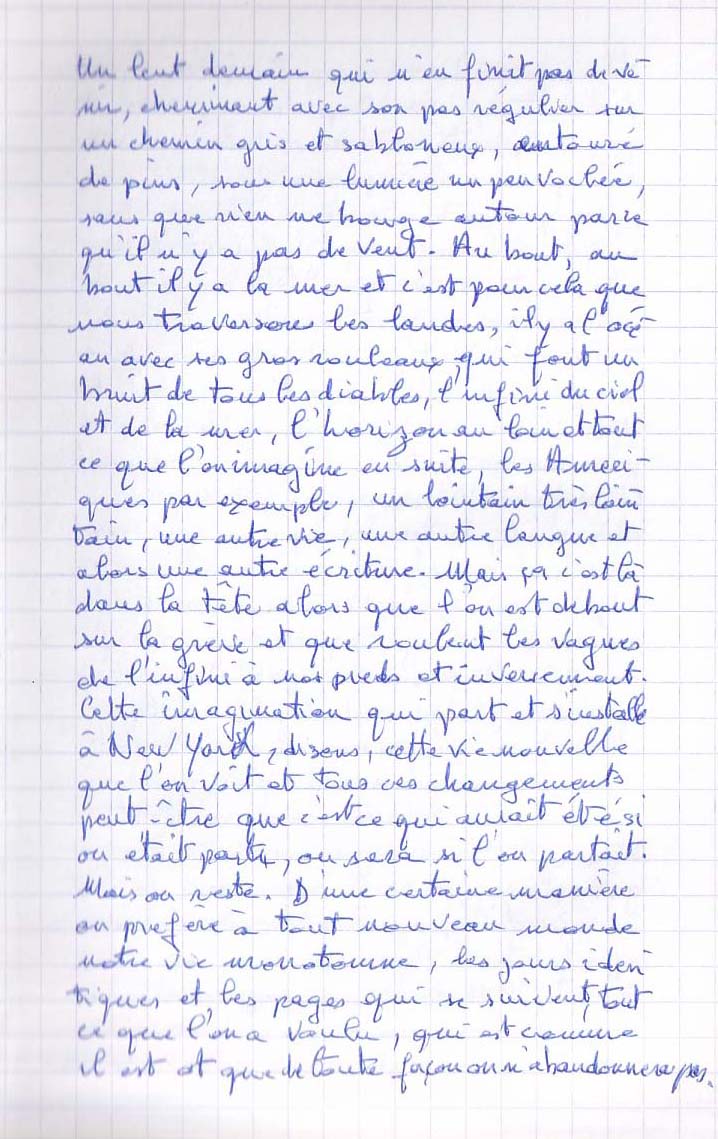 Un lent demain qui n'en finit pas de ve-
nir, cheminant avec son pas régulier sur
un chemin gris et sabloneux, entouré
de pins, sous une lumière un peu voilée,
sans que rien ne bouge autour parce
qu'il n'y a pas de vent. Au bout, au
bout il y a la mer et c'est pour cela que
nous traversons les landes, il y a l'océ
an avec ses gros rouleaux, qui font un
bruit de tous les diables, l'infini du ciel
et de la mer, l'horizon au loin et tout
ce que l'on imagine en suite, les Améri-
ques par exemple, un lointain très loin
tain, une autre vie, une autre langue et
alors une autre écriture. Mais ça c'est là
dans la tête alors que l'on est debout
sur la grève et que roulent les vagues
de l'infini à nos pieds et inversement.
Cette imagination qui part et s'installe
à New York, disons, cette vie nouvelle
que l'on voit et tous ces changements
peut-être que c'est ce qui aurait été si
on était parti, ou sera si l'on partait.
Mais on reste. D'une certaine manière
on préfère à tout nouveau monde
notre vie monotonne, les jours iden
tiques et les pages qui se suivent, tout
ce que l'on a voulu, qui est comme
il est et que de toute façon on n'abandonnera pas.